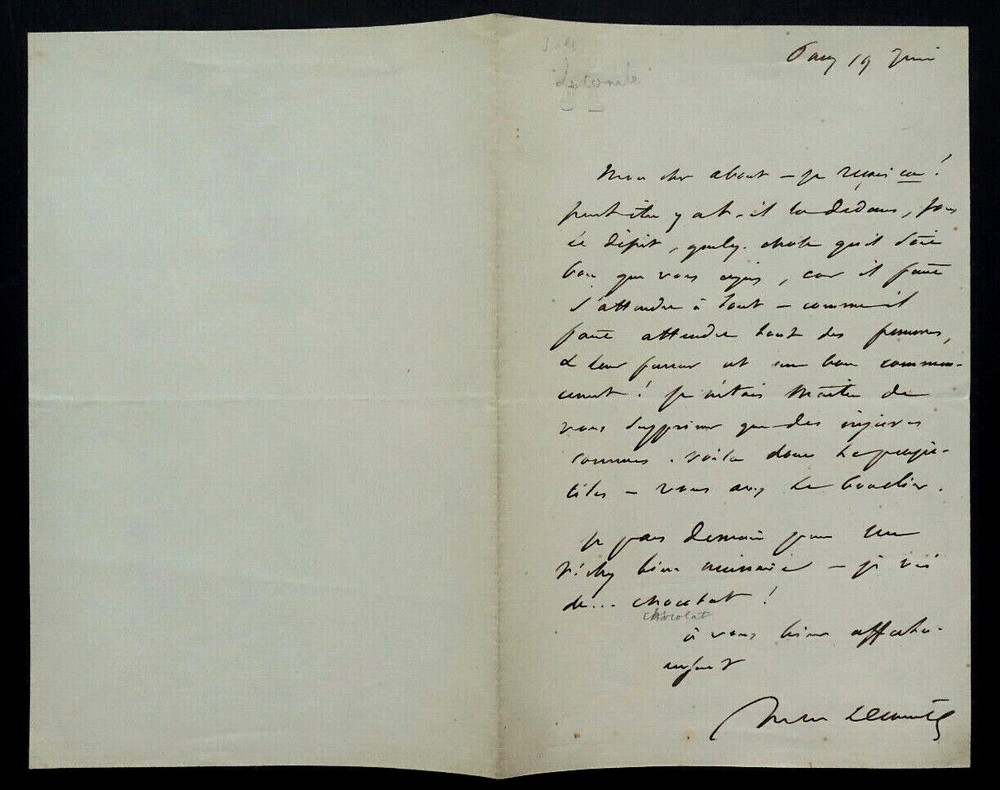 Jules
Lecomte
19 Juin
Mon cher about – je reçois ça!
peut être y a t-il là dedans, sous
ce dépit, quelq. chose qu'il soit
bon que vous ayez, car il faut
s'attendre à tout – comme il
faut attendre tout des femmes,
& leur fureur est un bon commen-
cement! je n'étais maître de
vous supprimer que des injures
connues. voilà donc les projec-
tiles – vous avez le bouclier.
je pars demain pour un
Vichy bien nécessaire – je vis
de... chocolat!
chocolat
à vous bien affectu-
eusement
Jules Lecomte